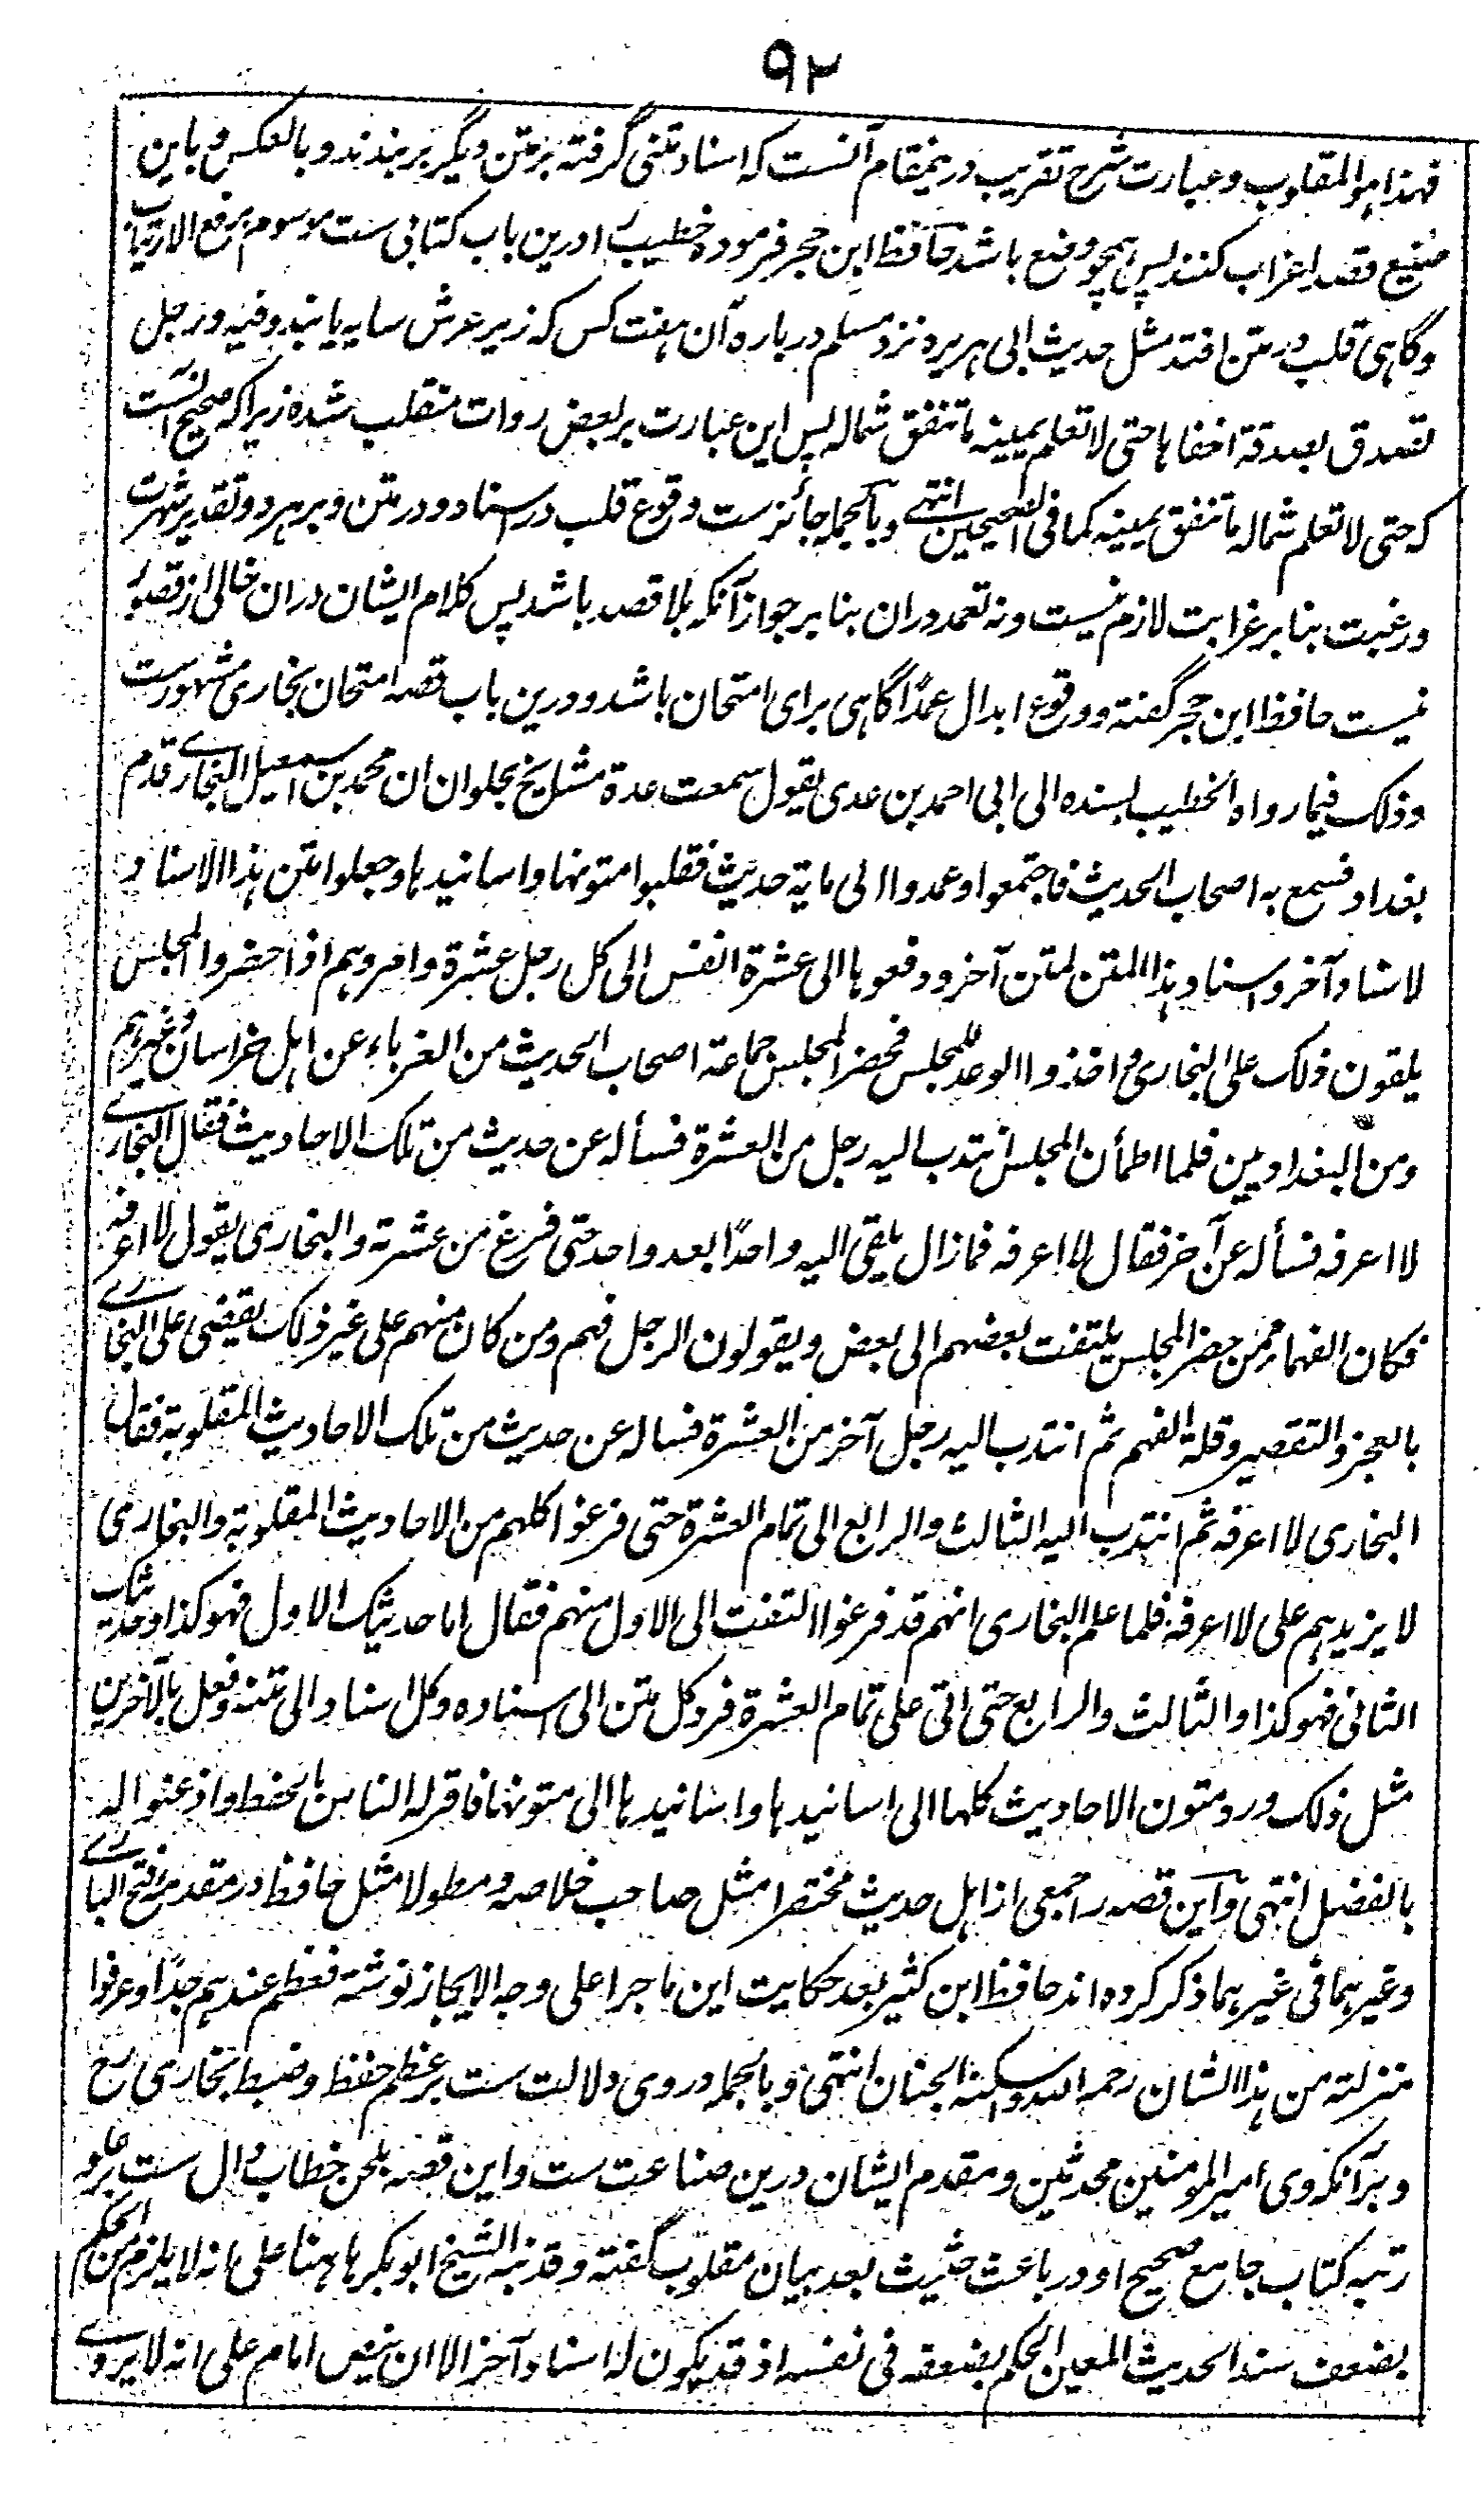 ۹۲
فهذا هو المقلوب وعبارت شرح تقریب درینمقام آنست که اسناد متنی گرفته بر متن دیگر بر بندند و بالعکس و باین
صنیع قصد اغراب کنند پس همچو وضع باشد حافظ ابن حجر فرموده خطیب را درین باب کتابی ست موسوم برفع الارتیاب
وگاهی قلب در متن افتد مثل حدیث ابی هریره نزد مسلم درباره آن هفت کس که زیر عرش سایه یابند وفیه ورجل
تصدق بصدقة اخفاها حتی لا تعلم یمینه ما تنفق شماله پس این عبارت بر بعض روات منقلب شده زیرا که صحیح آنست
که حتی لا تعلم شماله ما تنفق یمینه کما فی الصحیحین انتهے وبالجمله جائزست وقوع قلب در اسناد و در متن و بر هر دو تقدیر شهرت
ورغبت بنا بر غرابت لازم نیست ونه تعمد دران بنا بر جواز آنکه بلا قصد باشد پس کلام ایشان دران خالی از قصور
نیست حافظ ابن حجر گفته ووقوع ابدال عمداً گاهی برای امتحان باشد ودرین باب قصه امتحان بخاری مشهورست
وذلک فیما رواه الخطیب بسنده الی ابی احمد بن عدی یقول سمعت عدة مشایخ یحلون ان محمد بن اسمعیل البخاری قدم
بغداد فسمع به اصحاب الحدیث فاجتمعوا وعمدوا الی مایة حدیث فقلبوا متونها واسانیدها وجعلوا متن هذا الاسناد
لاسناد آخر واسناد هذا المتن لمتن آخر ودفعوها الی عشرة انفس الی کل رجل عشرة وامروهم اذا حضروا المجلس
یلقون ذلک علی البخاری واخذوا الوعد للمجلس فحضر المجلس جماعة اصحاب الحدیث من الغرباء عن اهل خراسان وغیرهم
ومن البغدادیین فلما اطمأن المجلس انتدب الیه رجل من العشرة فسأله عن حدیث من تلک الاحادیث فقال البخارے
لا اعرفه فسأله عن آخر فقال لا اعرفه فما زال یلقی الیه واحداً بعد واحد حتی فرغ من عشرته والبخاری یقول لا اعرفه
فکان الفهماء ممن حضر المجلس یلتفت بعضهم الی بعض ویقولون الرجل فهم ومن کان منهم علی غیر ذلک یقضی علی البخارے
بالعجز والتقصیر وقلة الفهم ثم انتدب الیه رجل آخر من العشرة فساله عن حدیث من تلک الاحادیث المقلوبة فقال
البخاری لا اعرفه ثم انتدب الیه الثالث والرابع الی تمام العشرة حتی فرغوا کلهم من الاحادیث المقلوبة والبخاری
لا یزیدهم علی لا اعرفه فلما علم البخاری انهم قد فرغوا التفت الی الاول منهم فقال اما حدیثک الاول فهو کذا وحدیثک
الثانی فهو کذا والثالث والرابع حتی اتی علی تمام العشرة فرد کل متن الی اسناده وکل اسناد الی متنه وفعل بالآخرین
مثل ذلک ورد متون الاحادیث کلها الی اسانیدها واسانیدها الی متونها فاقر له الناس بالحفظ واذعنوا له
بالفضل انتهی واین قصه را جمعی از اهل حدیث مختصرا مثل صاحب خلاصه ومطولا مثل حافظ در مقدمه فتح البارے
وغیرهما فی غیرهما ذکر کرده اند حافظ ابن کثیر بعد حکایت این ماجرا علی وجه الایجاز نوشته فعظم عندهم جداً وعرفوا
منزلته من هذا الشان رحمه الله واسکنه الجنان انتهی وبالجمله در وی دلالت ست بر عظم حفظ وضبط بخاری رح
وبر آنکه وی امیر المومنین محدثین ومقدم ایشان درین صناعت ست واین قصه بلحن خطاب دال ست بر علو
رتبه کتاب جامع صحیح او در باعث حثیث بعد بیان مقلوب گفته وقد نبه الشیخ ابو بکر هاهنا علی انه لا یلزم من الحکم
بضعف سند الحدیث المعین الحکم بضعفه فی نفسه اذ قد یکون له اسناد آخر الا ان ینص امام علی انه لا یروے